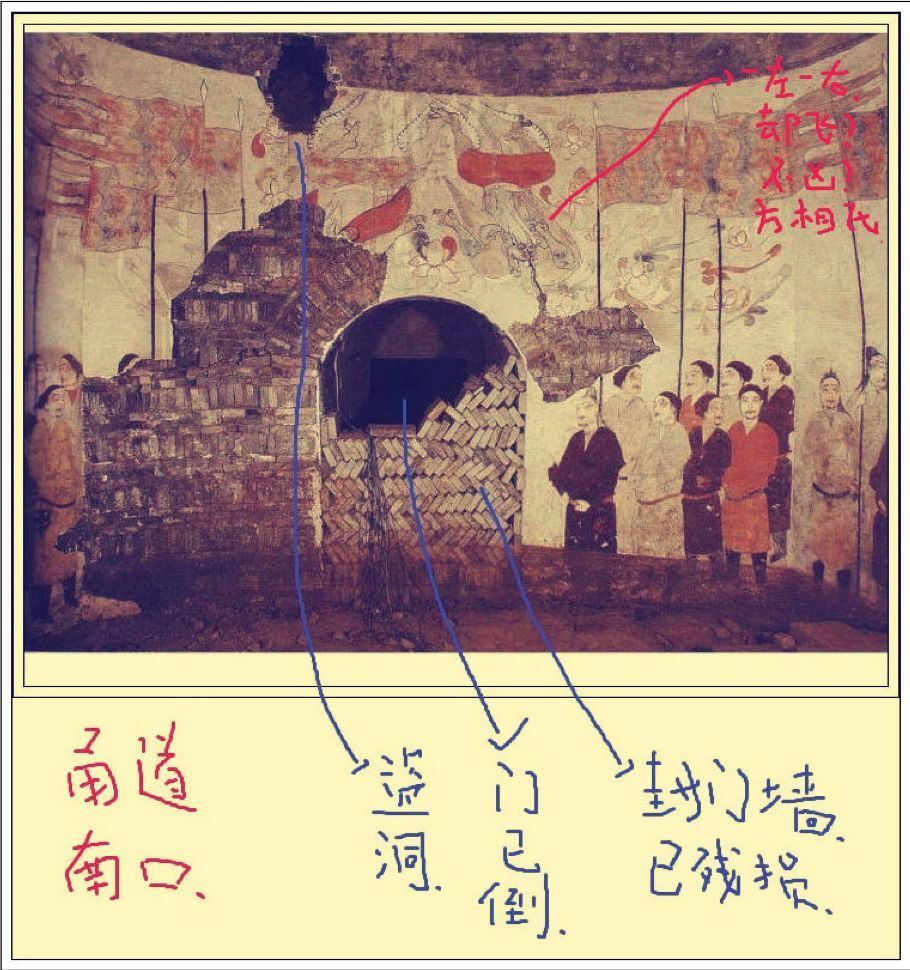 一左一右、
却飞？
不凶？
方相氏.
甬道
南口.
盗
洞.
门
已
倒.
封门墙.
已残损.